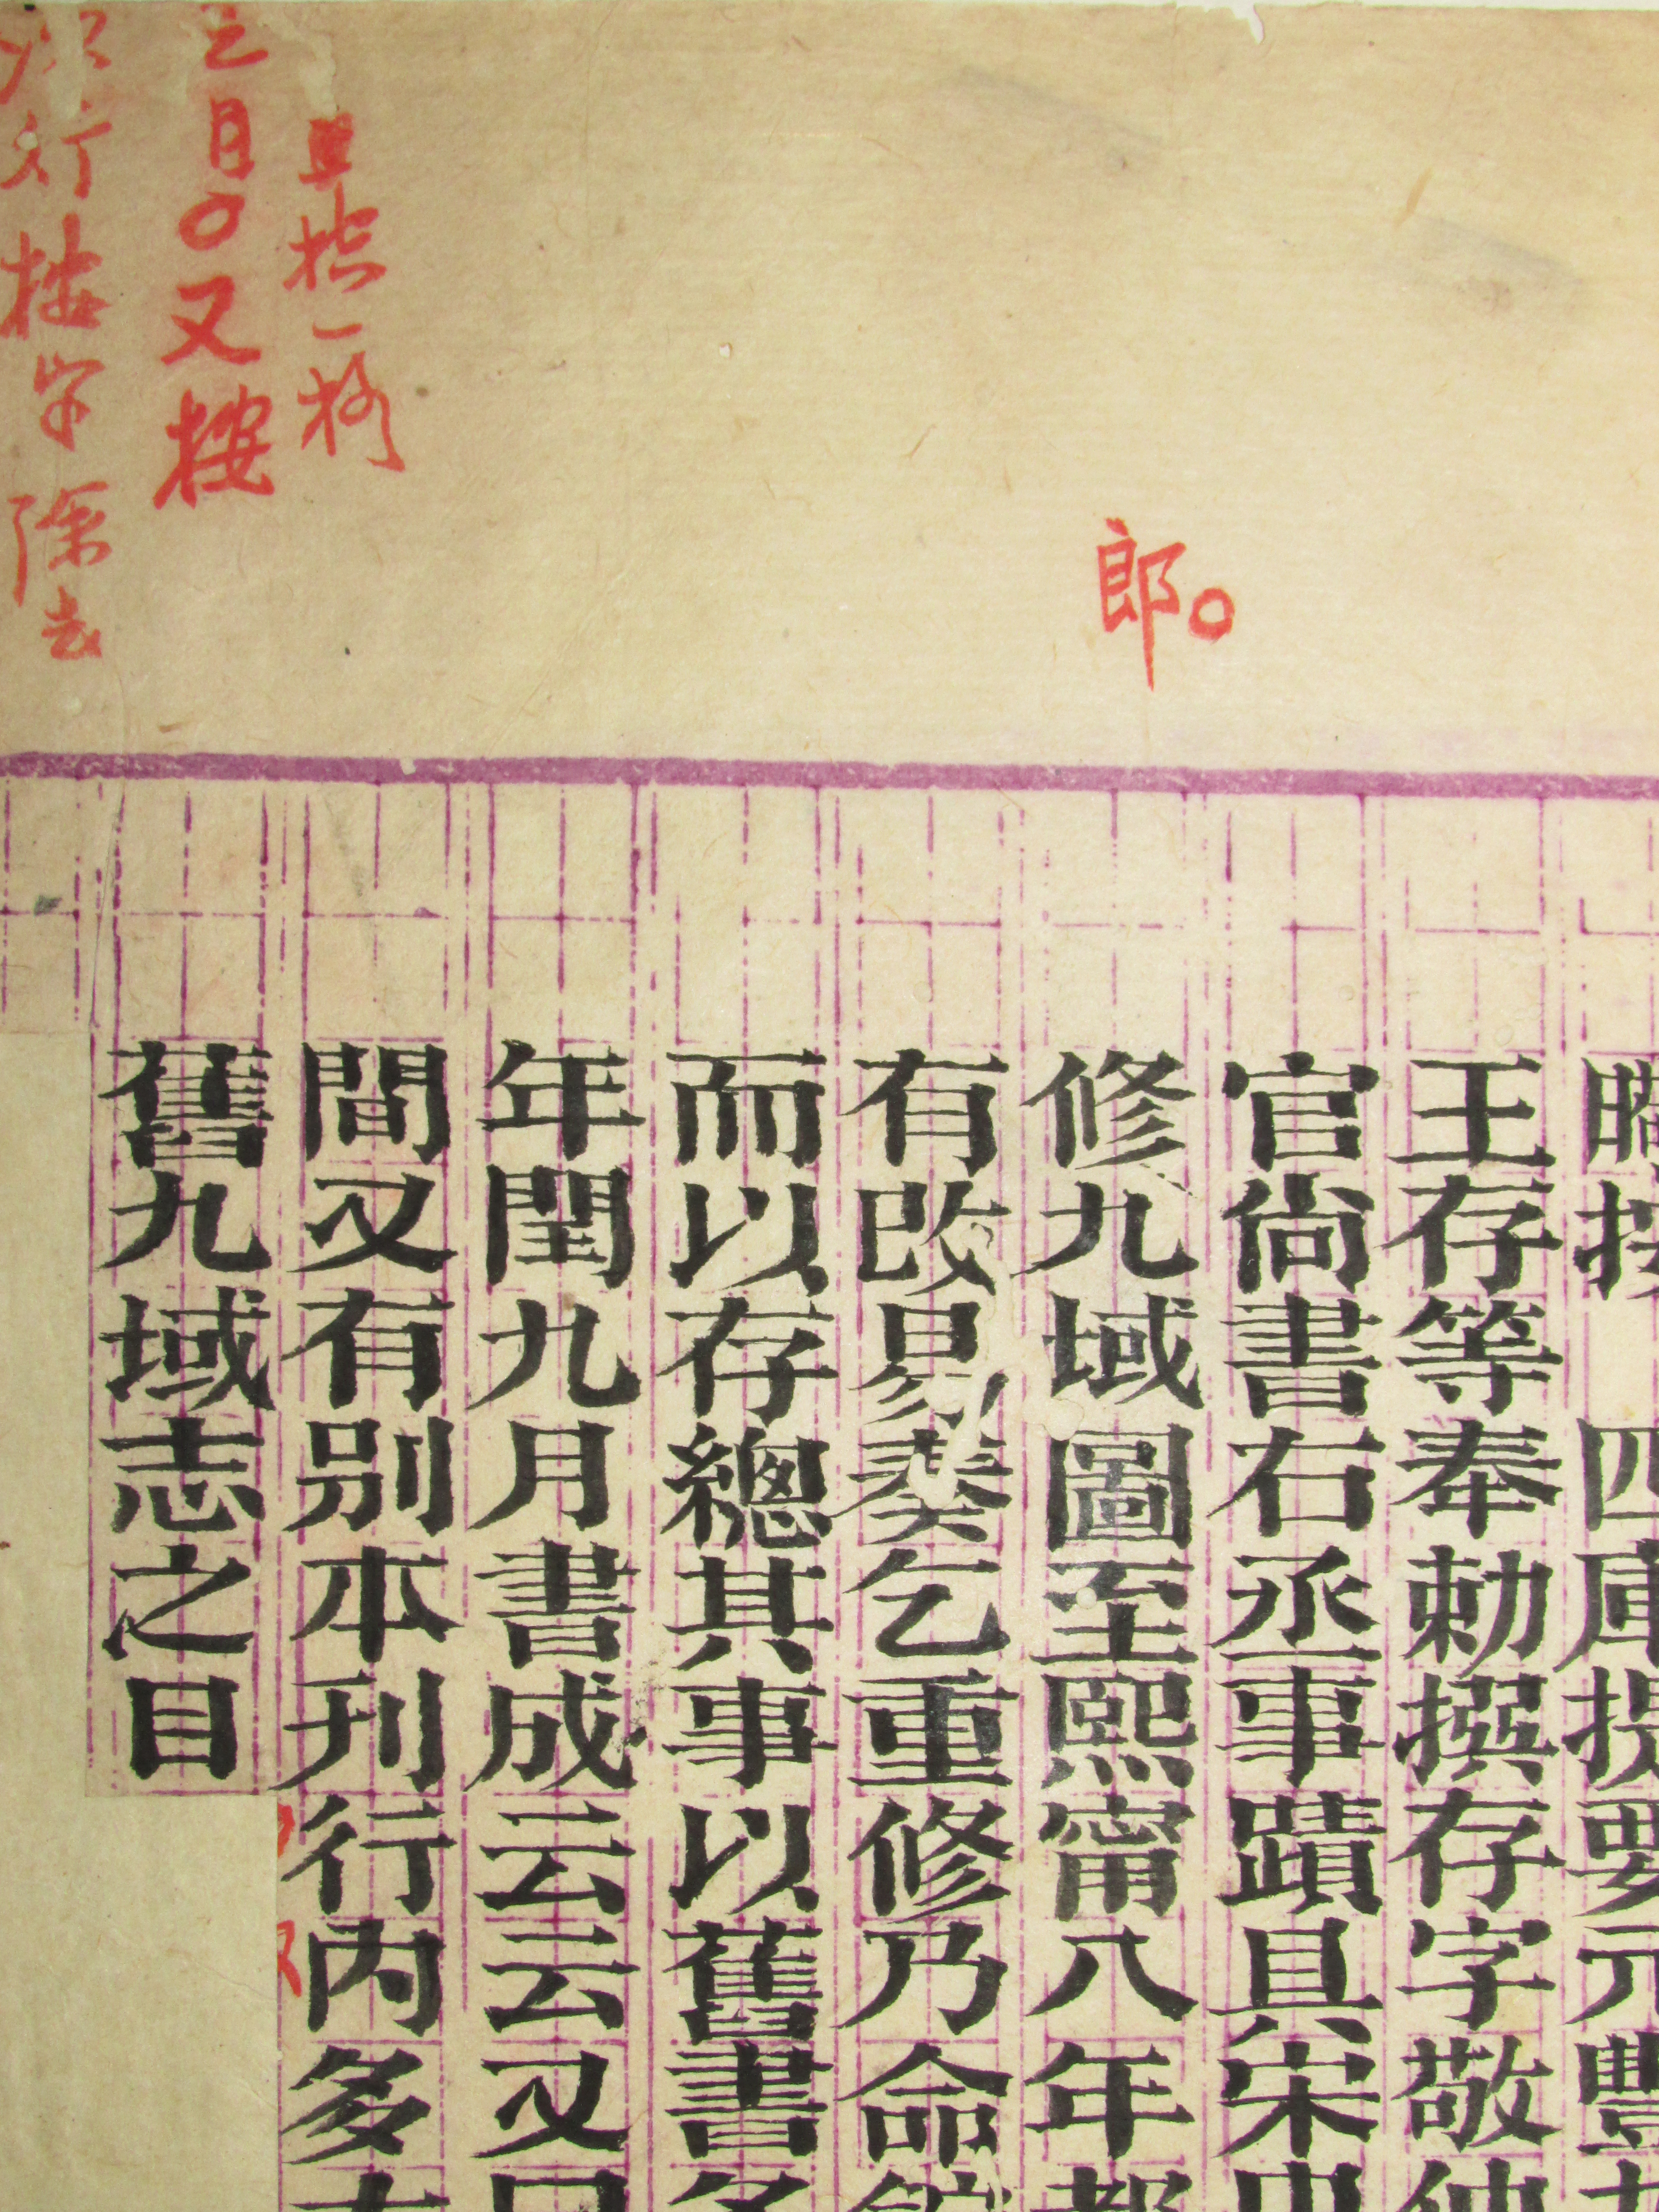 郎
且抬一格
之目〇又按
次行按字除去
按 四庫提要元豐
王存等奉勅撰存字敬仲
官尚書右丞事蹟具宋史
修九域圖至熙甯八年都
有改易奏乞重修乃命館
而以存總其事以舊書名
年閏九月書成云云又曰
間又有別本刊行內多
舊九域志之目